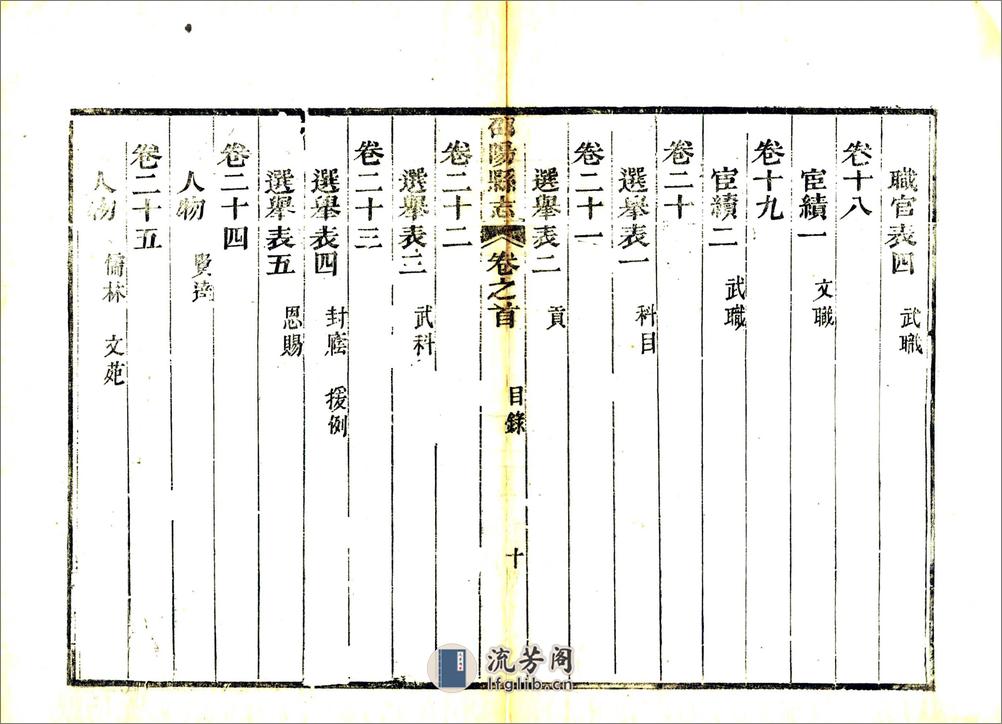 職官表四 武職
卷十八
宦績一 文職
卷十九
宦績二 武職
卷二十
選舉表一 科目
卷二十一
選舉表二 貢
邵陽縣志 卷之首 目錄 十
卷二十二
選舉表三 武科
卷二十三
選舉表四 封廕 援例
選舉表五 恩賜
卷二十四
人物 賢達
卷二十五
人物 儒林 文苑
流芳阁
lfglib.cn